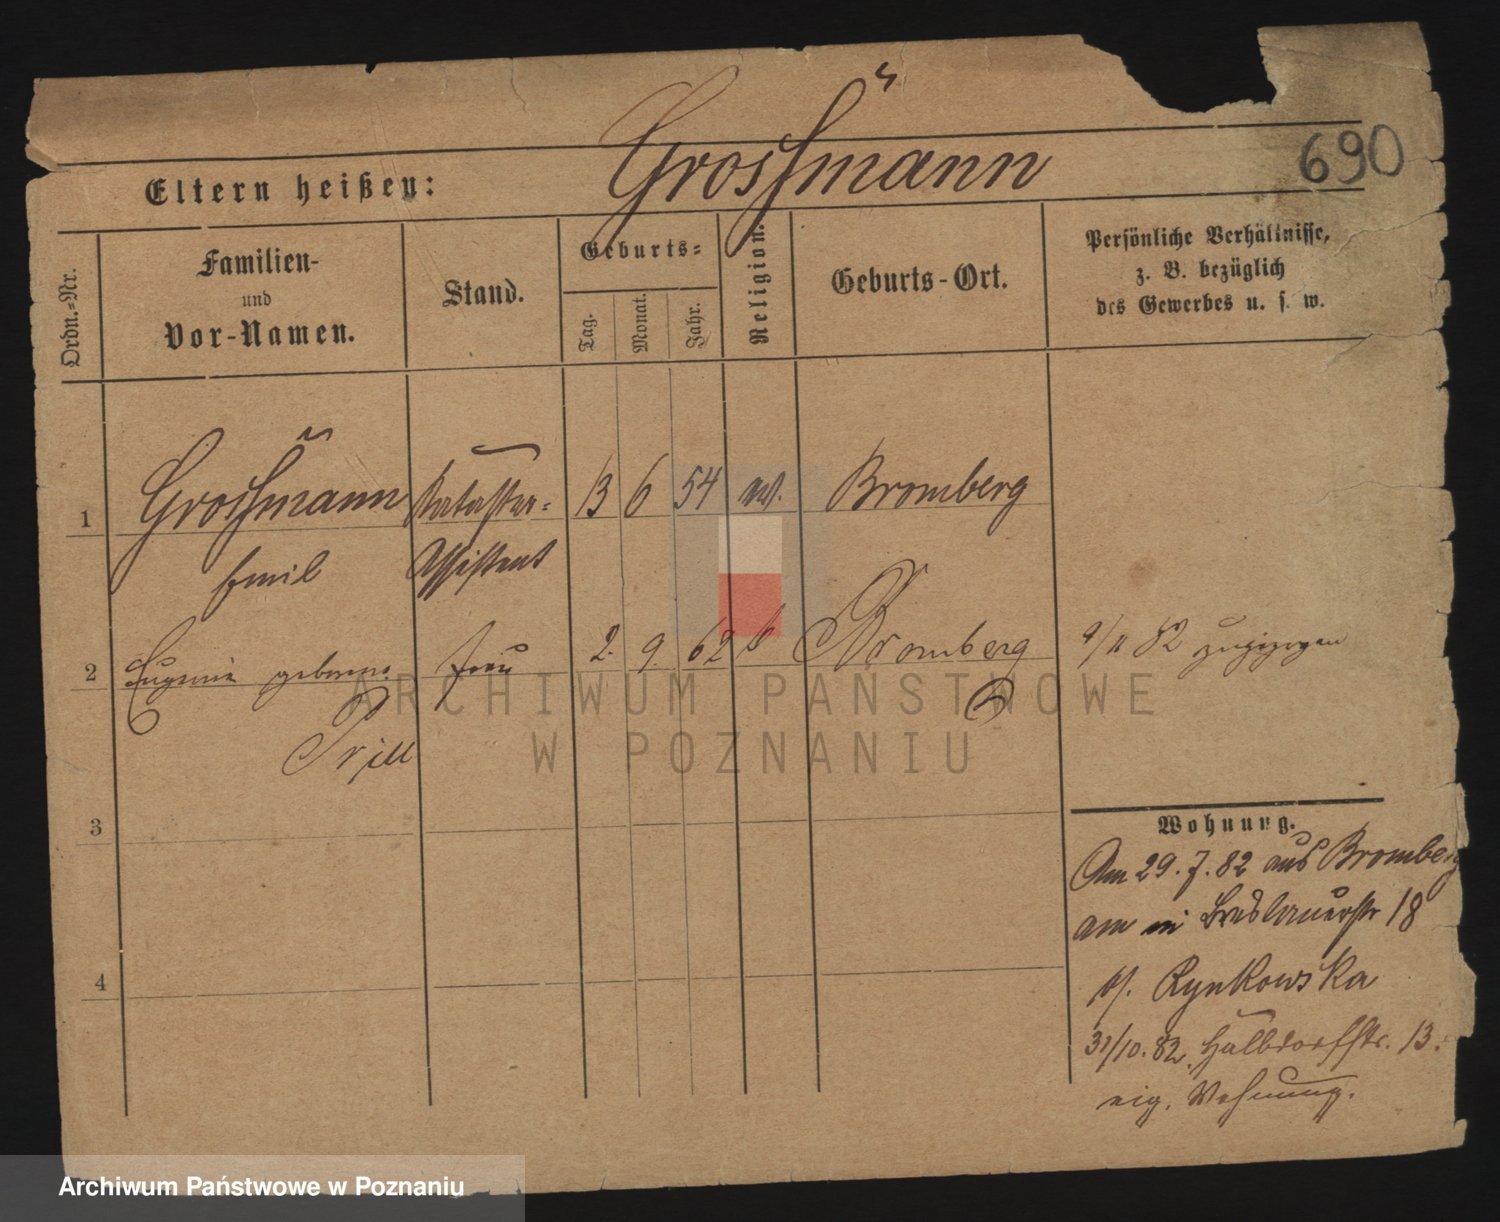 690
Eltern heißen: Grossmann
Ordn.-Nr.
Familien-
und
Vor-Namen.
Stand.
Geburts-
Tag.
Monat.
Jahr.
Religion.
Geburts-Ort.
Persönliche Verhältnisse,
z. B. bezüglich
des Gewerbes u. s. w.
1 Grossmann Kataster- 13 6 54 ev. Bromberg
Emil Assistent
2 Eugenie geborene Frau 2. 9. 62 Bromberg 9/11 82 zugezogen
Prill
3
4
Wohnung.
Am 29.7.82 aus Bromberg
am in Breslauerstr 18
b/. Rynkowska
31/10.82. Halbdorfstr. 13.
eig. Wohnung.
ARCHIWUM PAŃSTWOWE
W POZNANIU
Archiwum Państwowe w Poznaniu